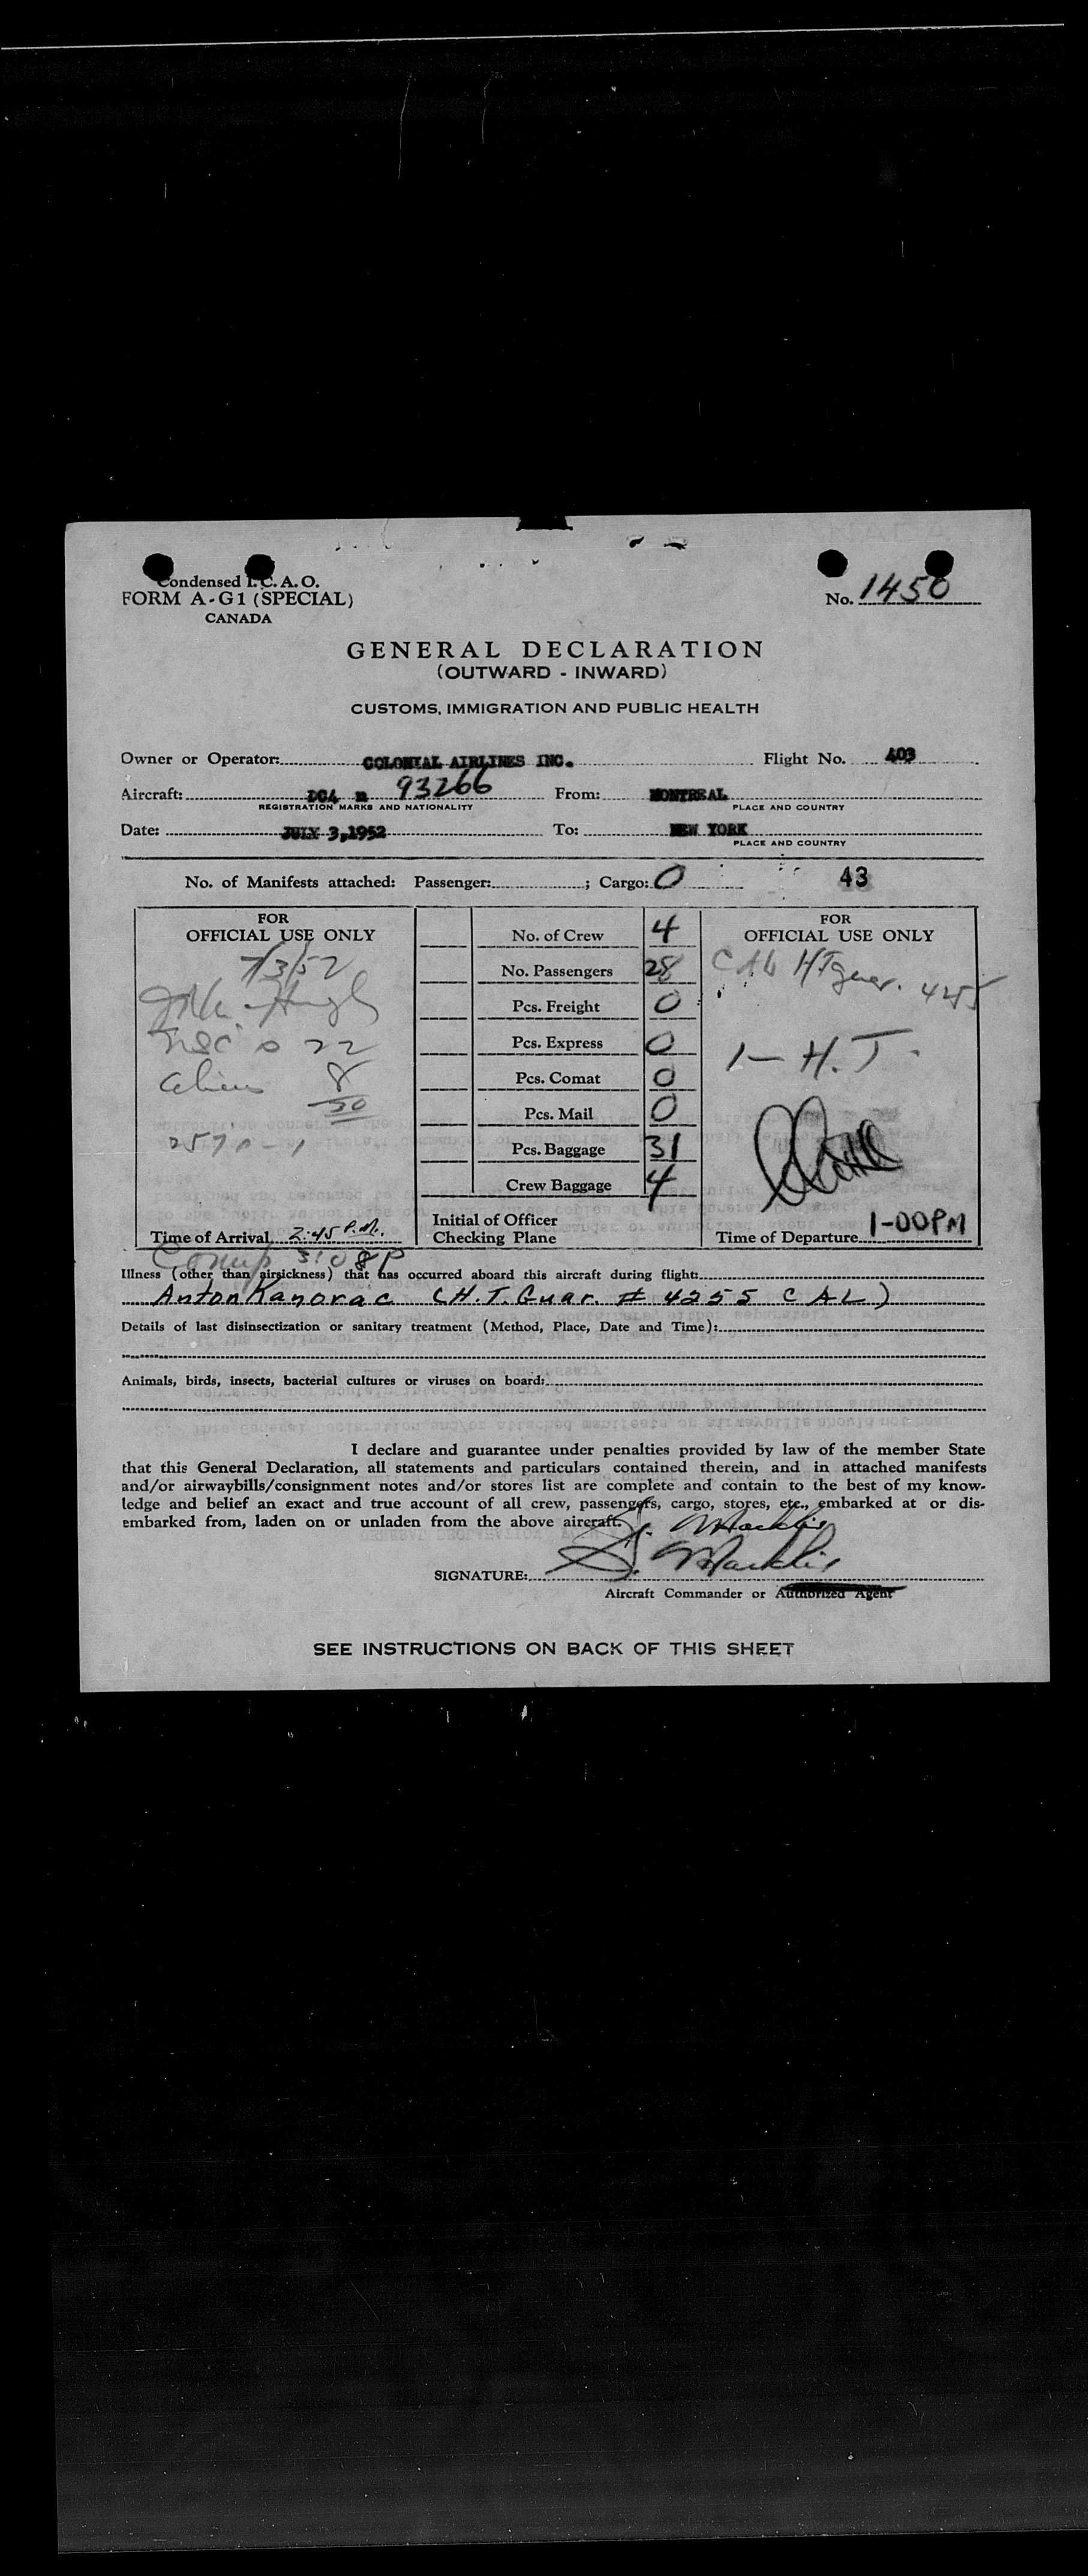 Condensed I.C.A.O.
FORM A-G1 (SPECIAL)
CANADA
No. 1450
GENERAL DECLARATION
(OUTWARD - INWARD)
CUSTOMS, IMMIGRATION AND PUBLIC HEALTH
Owner or Operator: COLONIAL AIRLINES INC. Flight No. 403
Aircraft: DC4 N 93266 From: MONTREAL
REGISTRATION MARKS AND NATIONALITY PLACE AND COUNTRY
Date: JULY 3,1952 To: NEW YORK
PLACE AND COUNTRY
No. of Manifests attached: Passenger: ; Cargo: 0 43
FOR
OFFICIAL USE ONLY
7/3/52
22
8
30
Time of Arrival 2:45 P.M.
No. of Crew 4
No. Passengers 28
Pcs. Freight 0
Pcs. Express 0
Pcs. Comat 0
Pcs. Mail 0
Pcs. Baggage 31
Crew Baggage 4
Initial of Officer
Checking Plane
FOR
OFFICIAL USE ONLY
1- H.T.
Time of Departure 1-00PM
Comp 3:08P
Illness (other than airsickness) that has occurred aboard this aircraft during flight:
Anton Kanorac (H.T. Guar. # 4255 CAL)
Details of last disinsectization or sanitary treatment (Method, Place, Date and Time):
Animals, birds, insects, bacterial cultures or viruses on board:
I declare and guarantee under penalties provided by law of the member State
that this General Declaration, all statements and particulars contained therein, and in attached manifests
and/or airwaybills/consignment notes and/or stores list are complete and contain to the best of my know-
ledge and belief an exact and true account of all crew, passengers, cargo, stores, etc., embarked at or dis-
embarked from, laden on or unladen from the above aircraft.
SIGNATURE:
Aircraft Commander or Authorized Agent
SEE INSTRUCTIONS ON BACK OF THIS SHEET